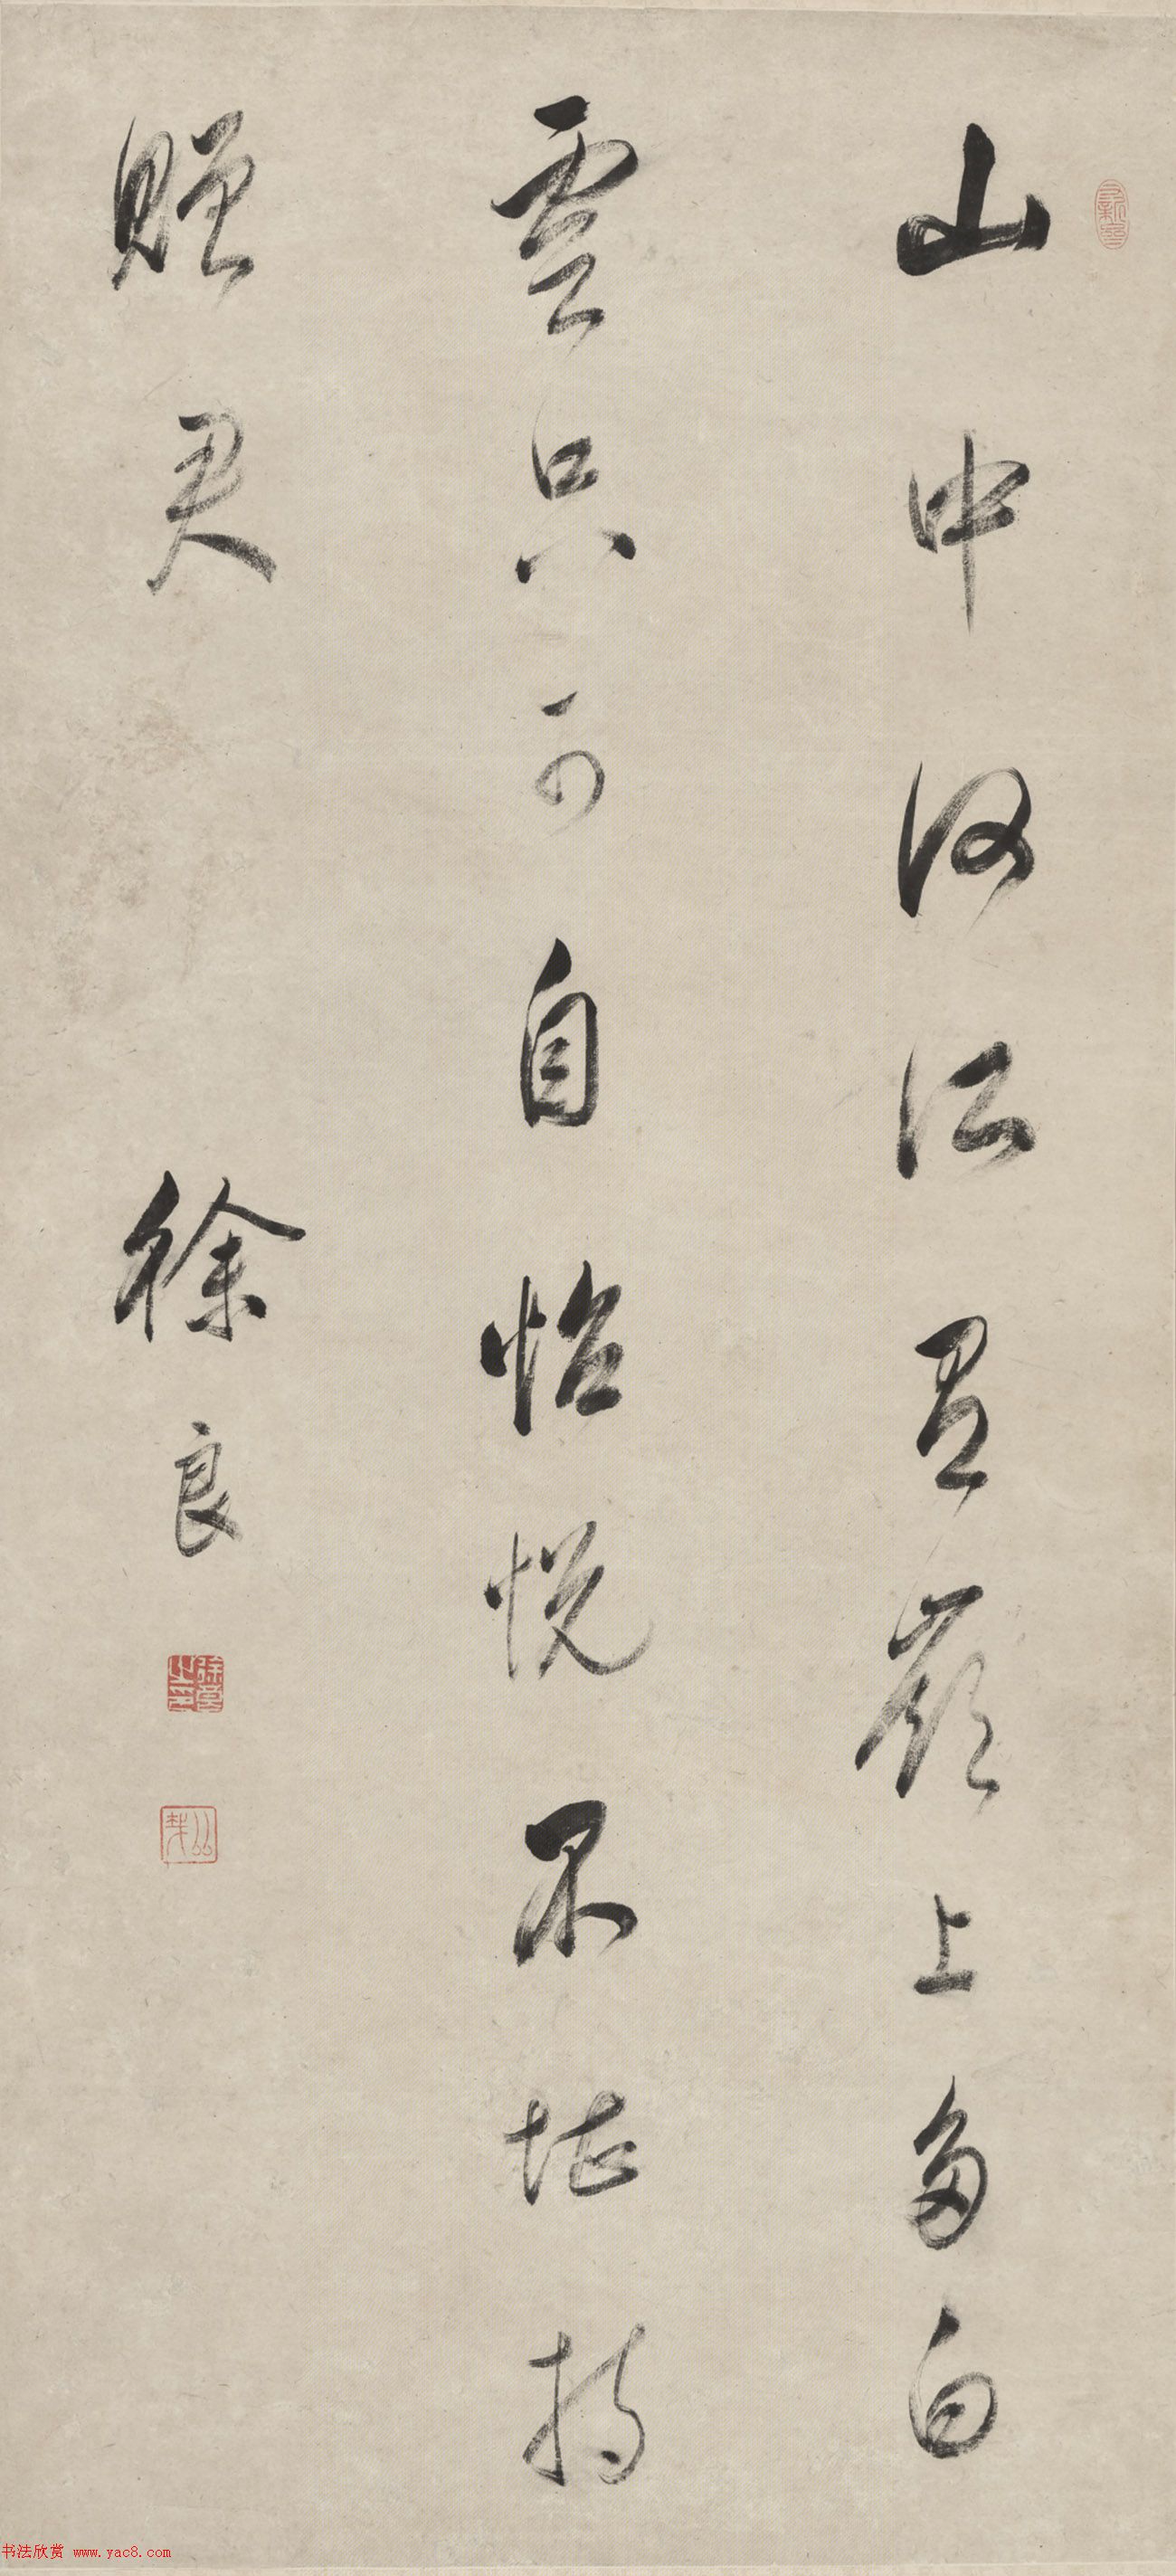 山中何所有嶺上多白
雲只可自怡悅不堪持
贈君
徐良
书法欣赏 www.yac8.com